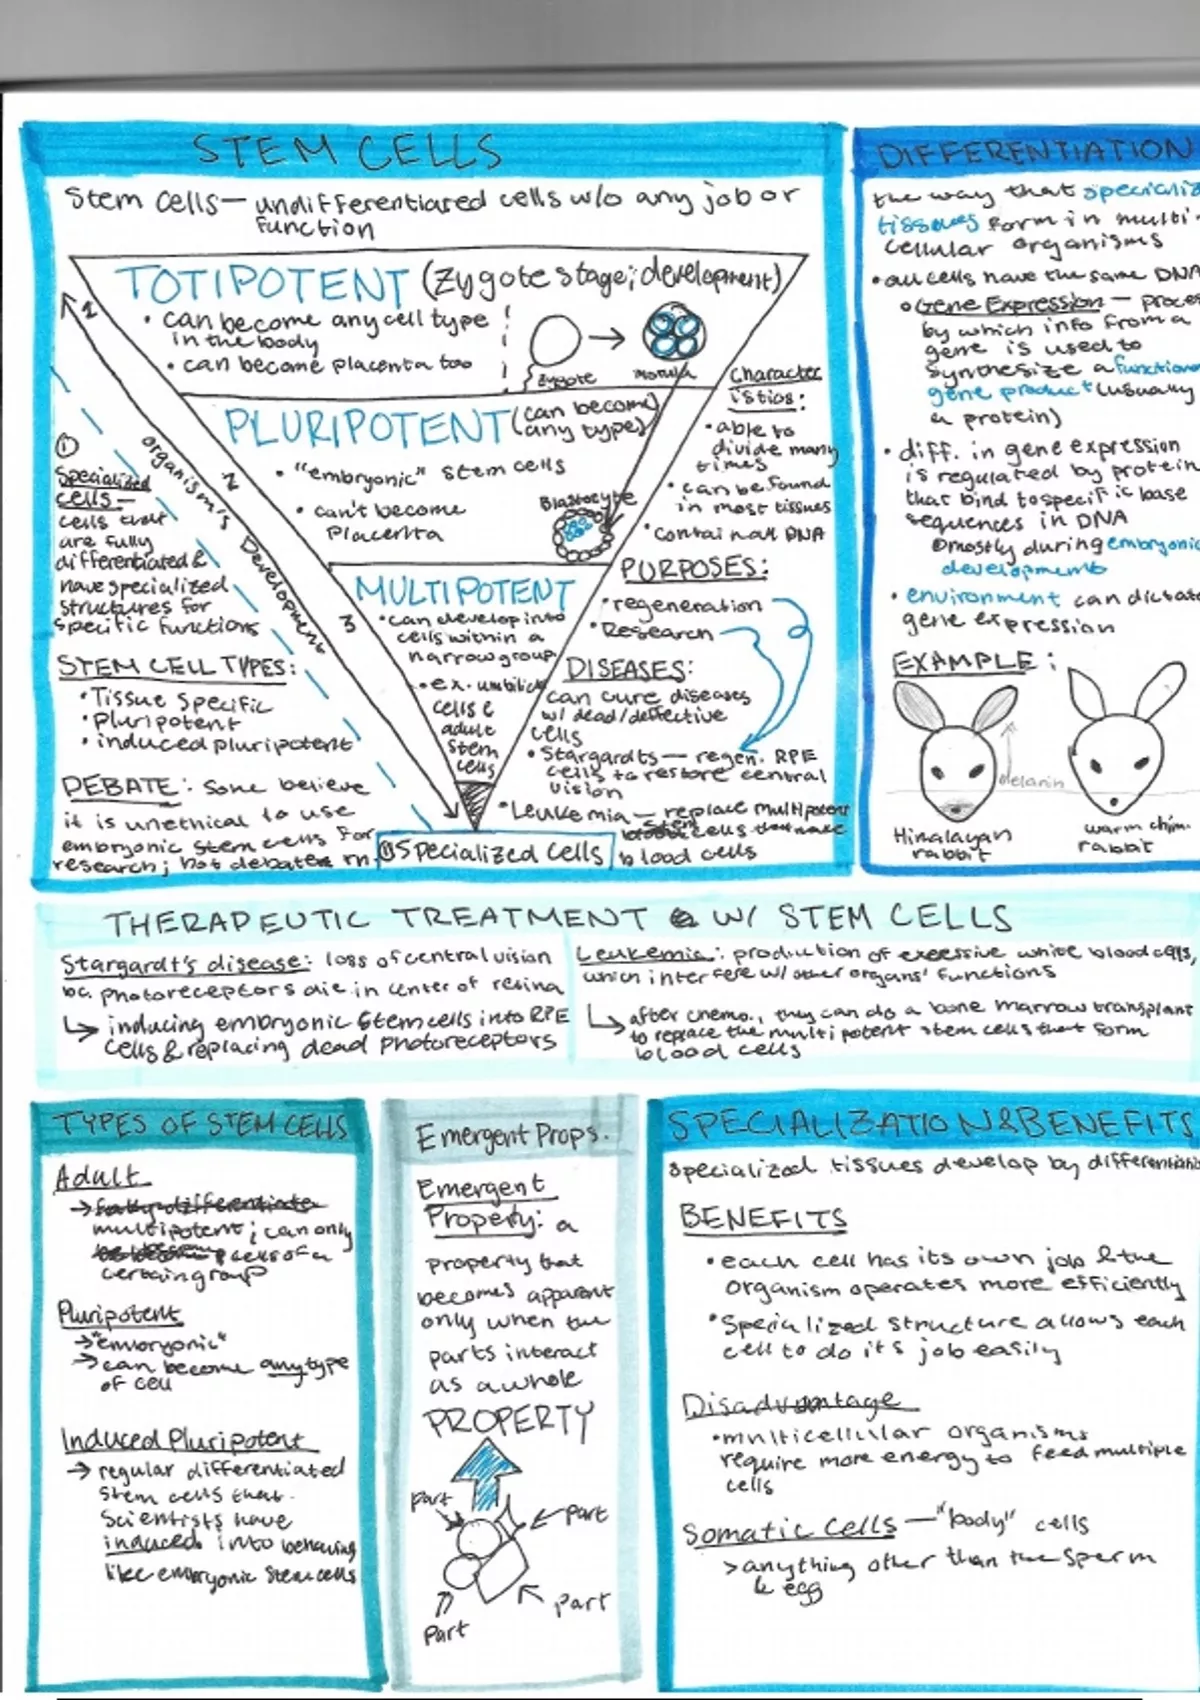 STEM CELLS
Stem cells — undifferentiared cells w/o any job or
function
TOTIPOTENT (zygote stage; development)
• can become any cell type
in the body
• can become placenta too
zygote
morula
PLURIPOTENT (can become
any type)
• "embryonic" stem cells
• can't become
Placenta
Blastocyte
MULTIPOTENT
• can develop into
cells within a
narrow group
• ex. umbilic
cells &
adult
stem
cells
organism's Development
1
2
3
① Specialized
cells —
cells that
are fully
differentiated &
have specialized
structures for
specific functions
STEM CELL TYPES:
• Tissue Specific
• Pluripotent
• induced pluripotent
DEBATE: Some believe
it is unethical to use
embryonic stem cells for
research; hot debate rn.
① Specialized cells
Character
istics:
• able to
divide many
times
• can be found
in most tissues
• contain all DNA
PURPOSES:
• regeneration
• Research
DISEASES:
can cure diseases
w/ dead/deffective
cells
• Stargardts — regen. RPE
cells to restore central
vision
• Leukemia — replace multipotent
stem cells that make
blood cells
DIFFERENTIATION
the way that specializ
tissues form in multi-
cellular organisms
• all cells have the same DNA
o Gene Expression — proces
by which info from a
gene is used to
synthesize a function
gene product (usually
a protein)
• diff. in gene expression
is regulated by protein
that bind to specific base
sequences in DNA
o mostly during embryonic
developments
• environment can dictate
gene expression
EXAMPLE:
melanin
Himalayan
rabbit
warm chim.
rabbit
THERAPEUTIC TREATMENT W/ STEM CELLS
Stargardt's disease: loss of central vision
bc. photoreceptors die in center of retina
↳ inducing embryonic stem cells into RPE
cells & replacing dead photoreceptors
Leukemia: production of excessive white blood cells,
which interfere w/ other organs' functions
↳ after chemo., they can do a bone marrow transplant
to replace the multipotent stem cells that form
blood cells
TYPES OF STEM CELLS
Adult
→ fully differentiate
multipotent; can only
cells of a
certain group
Pluripotent
→ "embryonic"
→ can become any type
of cell
Induced Pluripotent
→ regular differentiated
stem cells that
scientists have
induced into behaving
like embryonic stem cells
Emergent Props.
Emergent
Property: a
property that
becomes apparent
only when the
parts interact
as a whole
PROPERTY
part
part
part
part
SPECIALIZATION & BENEFITS
Specialized tissues develop by differentiatio
BENEFITS
• each cell has its own job & the
organism operates more efficiently
• Specialized structure allows each
cell to do it's job easily
Disadvantage
• multicellular organisms
require more energy to feed multiple
cells
Somatic Cells — "body" cells
> anything other than the sperm
& egg